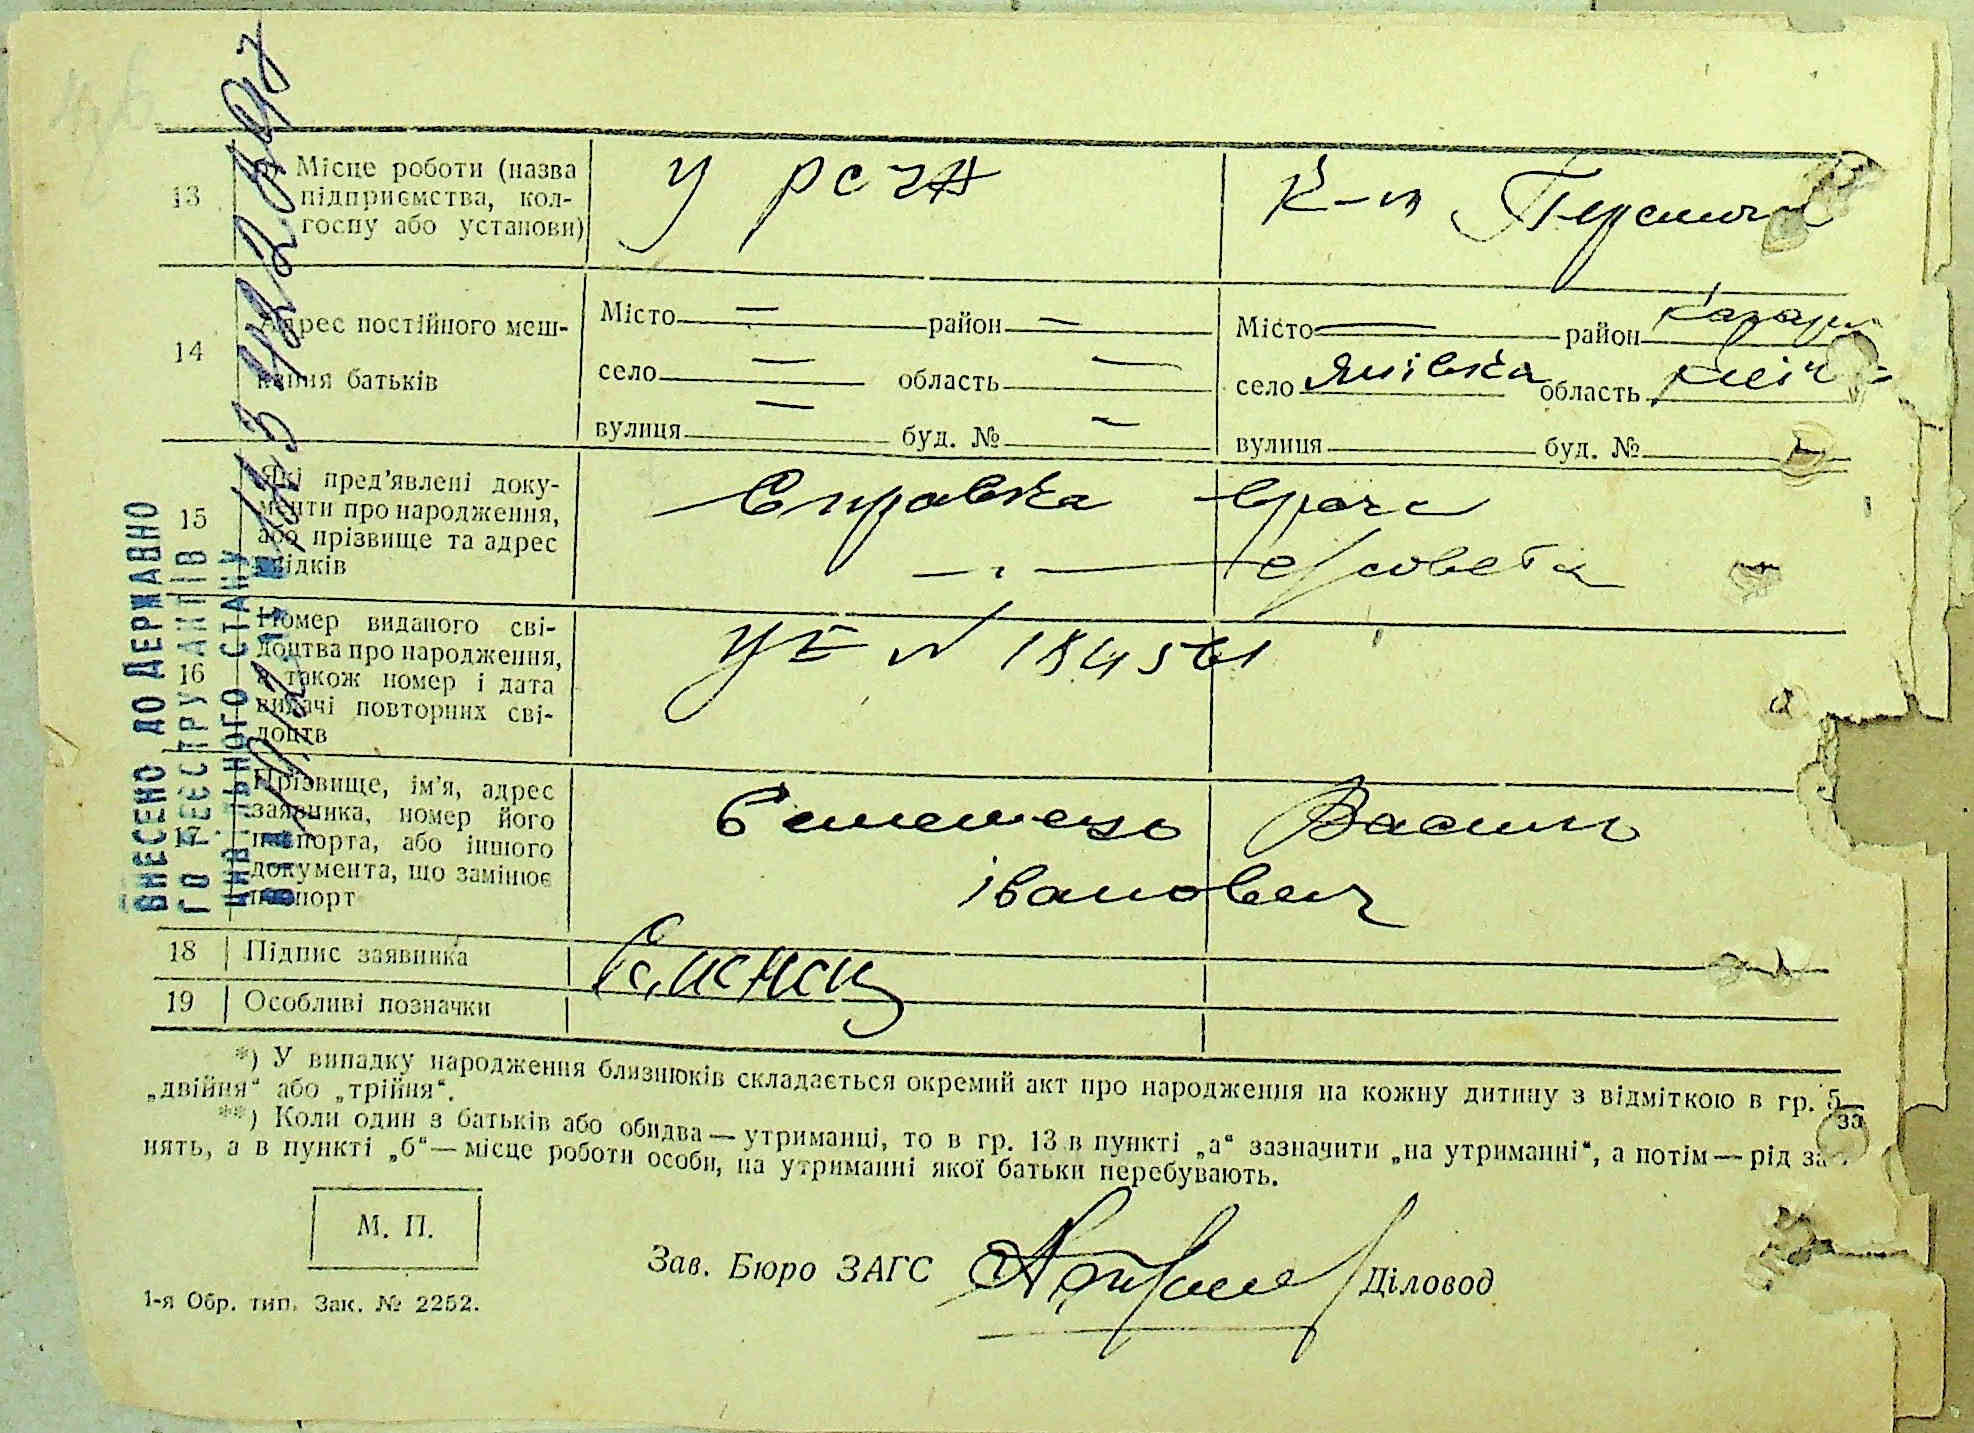 13
б) Місце роботи (назва
підприємства, кол-
госпу або установи)
у РСЧА
К-п
14
Адрес постійного меш-
кання батьків
Місто — район —
село — область —
вулиця — буд. № —
Місто — район
село Янівка область
вулиця буд. № —
15
Які пред'явлені доку-
менти про народження,
або прізвище та адрес
свідків
Справка врача
— „ — с/совета
16
Номер виданого сві-
доцтва про народження,
а також номер і дата
видачі повторних сві-
доцтв
УЕ № 184561
17
Прізвище, ім'я, адрес
заявника, номер його
паспорта, або іншого
документа, що замінює
паспорт
Василь
Іванович
18 Підпис заявника
19 Особливі позначки
*) У випадку народження близнюків складається окремий акт про народження на кожну дитину з відміткою в гр. 5
„двійня“ або „трійня“.
**) Коли один з батьків або обидва — утриманці, то в гр. 13 в пункті „а“ зазначити „на утриманні“, а потім — рід за-
нять, а в пункті „б“ — місце роботи особи, на утриманні якої батьки перебувають.
М. П.
Зав. Бюро ЗАГС
Діловод
1-я Обр. тип. Зак. № 2252.
ВНЕСЕНО ДО ДЕРЖАВНО
ГО РЕЄСТРУ АКТІВ
ЦИВІЛЬНОГО СТАНУ